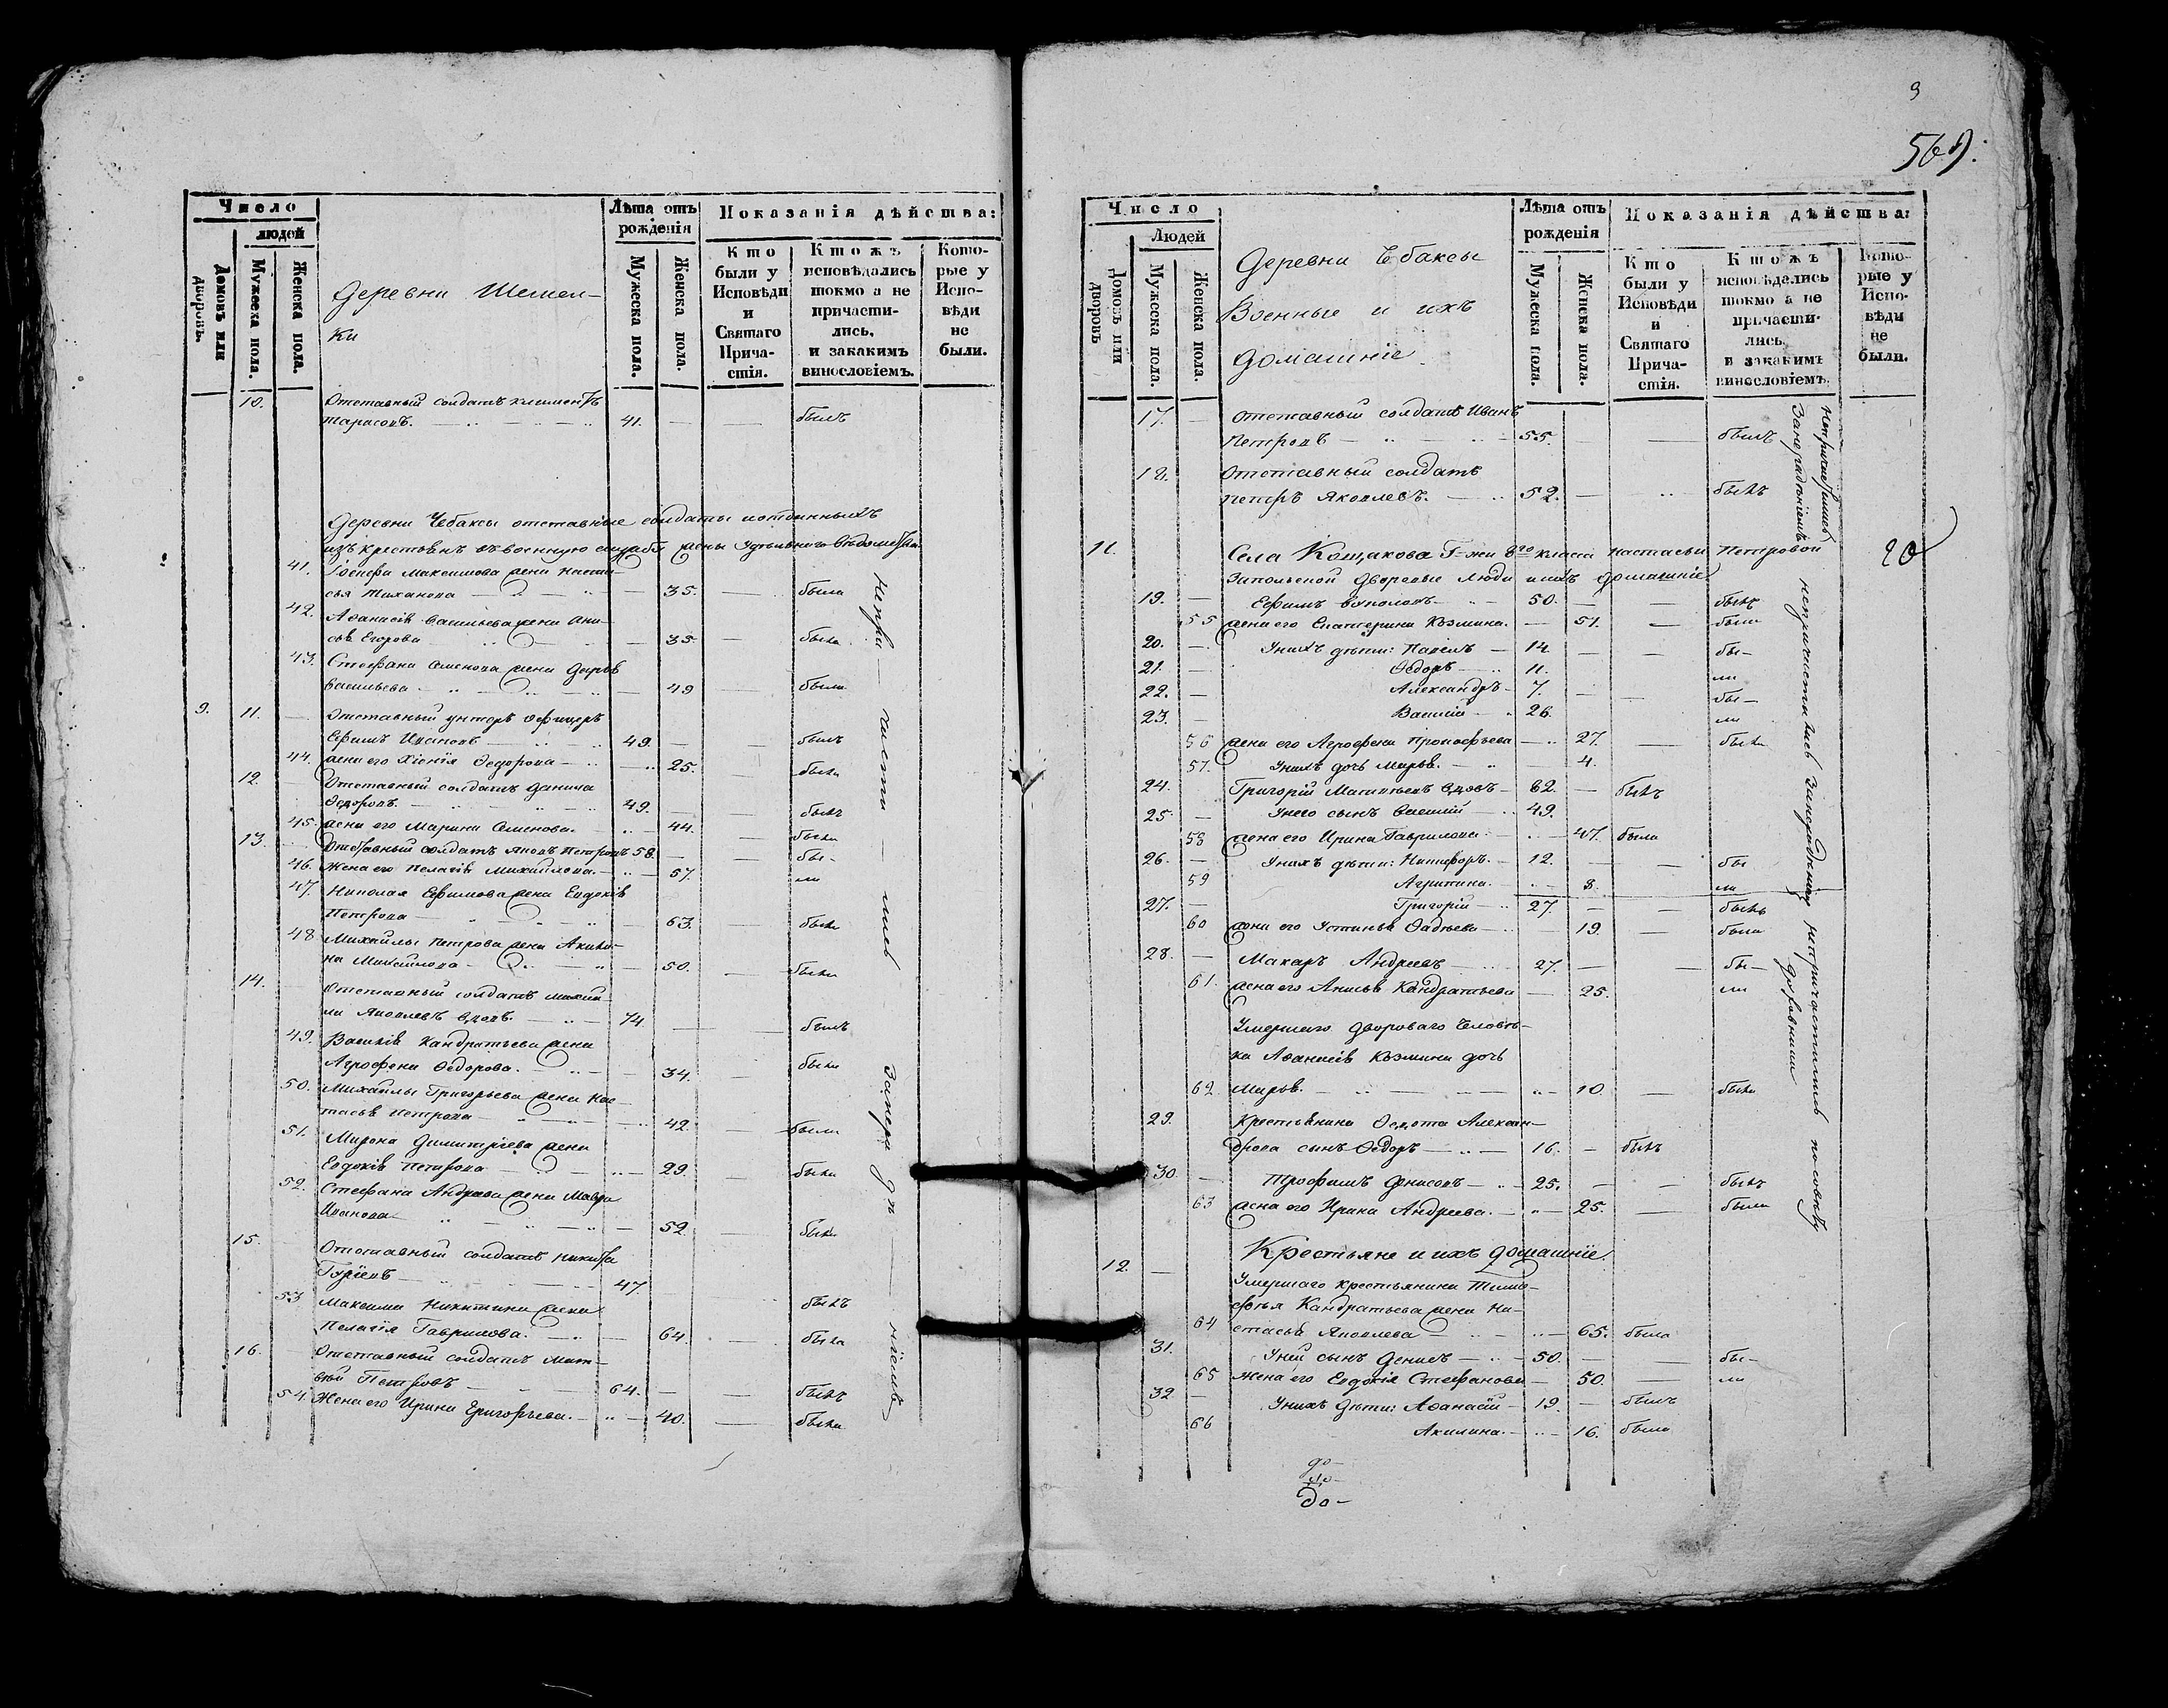 Число
людей
Домовъ или дворовъ.
Мужеска пола.
Женска пола.
Деревни Шемел-
ки
Лѣта отъ рожденія
Мужеска пола.
Женска пола.
Показанія дѣйства:
Кто были у Исповѣди и Святаго Прича-стія.
Кто жъ исповѣдались токмо а не причасти-лись, и закакимъ винословіемъ.
Кото-рые у Испо-вѣди не были.
10. Отставный солдатъ Климентъ
Тарасовъ. 41. былъ
Деревни Чебаксы отставные солдаты и отданныхъ
изъ крестьянъ въ военную службу жены удѣльнаго вѣдомства
41. Іосифа Максимова жена Наста-
сья Тиханова 35. была
42. Аѳанасія Васильева жена Ани-
сья Егорова 35. была
43. Стефана Семенова жена Дарья
Васильева 49 была
9. 11. Отставный унтеръ офицеръ
Ефимъ Ивановъ 49. былъ
44. жена его Ксенія Федорова 25. была
12. Отставный солдатъ Данила
Федоровъ. 49. былъ
45. жена его Марина Семенова. 44. была
13. Отставный солдатъ Яковъ Петровъ 58. бы-
46. Жена его Пелагія Михайлова. 57. ли
47. Николая Ефимова жена Евдокія
Петрова 63. была
48 Михайлы Петрова жена Акили-
на Михайлова 50. была
14. Отставный солдатъ Михай-
ла Яковлевъ вдовъ. 74. былъ
49. Василія Кандратьева жена
Агрофена Федорова. 34. была
50. Михайлы Григорьева жена Нас-
тасья Петрова 42. была
51. Мирона Димитріева жена
Евдокія Петрова 29. была
52. Стефана Андреева жена Мавра
Иванова 52. была
15. Отставный солдатъ Никита
Гуріевъ 47 былъ
53 Максима Никитина жена
Пелагія Гаврилова. 64. была
16. Отставный солдатъ Мат-
вѣй Петровъ 64. былъ
54. Жена его Ирина Григорьева. 40. была
9
569.
Число
Людей
Домовъ или дворовъ
Мужеска пола.
Женска пола.
Деревни Чебаксы
Военные и ихъ
домашніе
Лѣта отъ рожденія
Мужеска пола.
Женска пола.
Показанія дѣйства:
Кто были у Исповѣди и Святаго Прича-стія.
Кто жъ исповѣдались токмо а не причасти-лись, и закакимъ винословіемъ.
Кото-рые у Испо-вѣди не были.
17. Отставный солдатъ Иванъ
Петровъ 55. былъ
18. Отставный солдатъ
Петръ Яковлевъ. 52. былъ
11. Села Кощакова Г-жи 8го класса Настасьи Петровой
Запольской дворовые люди и ихъ домашніе
19. Ефимъ 50. былъ
55 жена его Екатерина Козмина. 51. была
20. У нихъ дѣти: Павелъ 14. бы-
21. Федоръ 11. ли
22. Александръ 7. бы-
23. Василій 26. ли
56 жена его Агрофена Прокофьева 27. была
57. У нихъ дочь Марья. 4.
24. Григорій Матвѣевъ вдовъ 62. былъ
25. У него сынъ Василій 49.
58 жена его Ирина Гаврилова. 47. была
26. У нихъ дѣти: Никифоръ. 12. бы
59 Агрипина. 8. ли
27. Григорій 27. былъ
60 жена его Устинья Фадѣева 19. была
28. Макаръ Андреевъ 27. бы-
61. жена его Анисья Кандратьева 25. ли
Умершаго двороваго человѣ-
ка Аѳанасія Козмина дочь
62 Марья. 10. была
29. Крестьянина Федота Алексан-
дрова сынъ Федоръ 16. былъ
30. Трофимъ Денисовъ 25. былъ
63 жена его Ирина Андреева. 25. была
Крестьяне и ихъ домашніе.
12. Умершаго крестьянина Тимо-
фѣя Кандратьева жена На-
64 стасья Яковлева 65. была
31. У ней сынъ Денисъ 50. бы-
65 Жена его Евдокія Стефанова 50. ли
32. У нихъ дѣти: Аѳанасій 19. былъ
66 Акилина. 16. была
до-